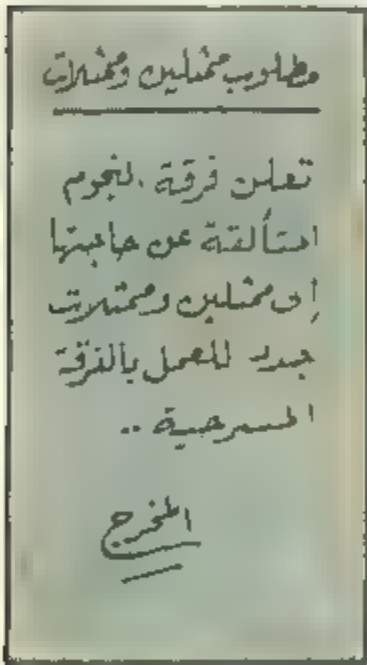 مطلوب ممثلين وممثلات
تعلن فرقة النجوم
المتألقة عن حاجتها
إلى ممثلين وممثلات
جدد للعمل بالفرقة
المسرحية ..
المخرج